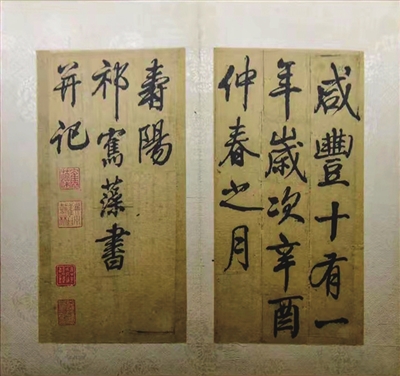 咸豐十有一
年歲次辛酉
仲春之月
壽陽
祁寯藻書
并記